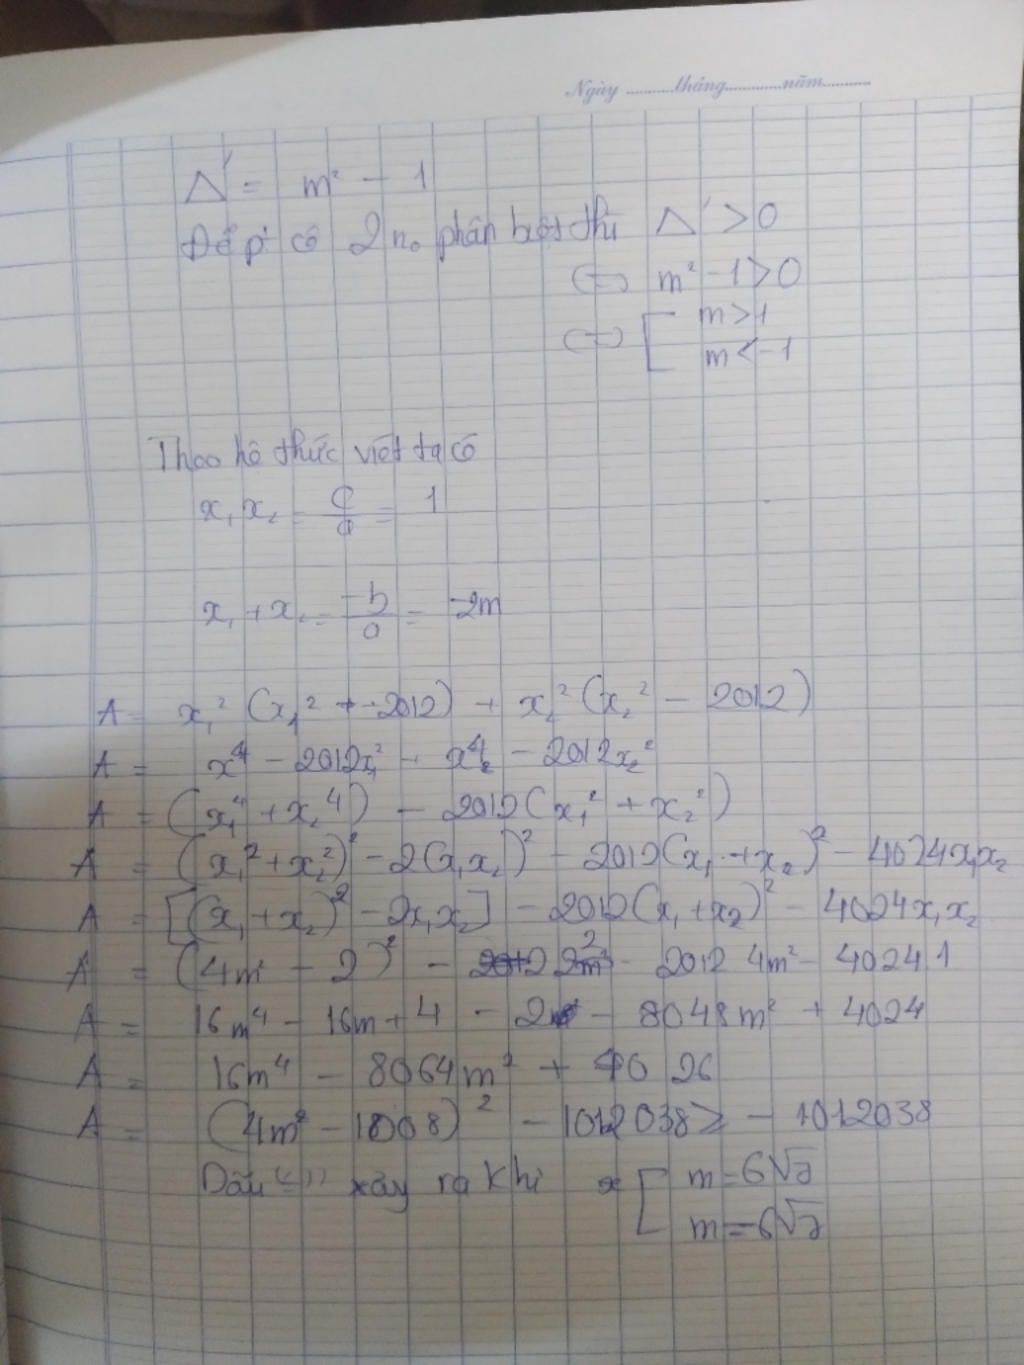 Ngày ..........tháng............năm..........
Δ' = m² - 1
Để pt có 2 n₀ phân biệt thì Δ' > 0
<=> m² - 1 > 0
<=> [ m > 1
m < -1
Theo hê thức viét ta có
x₁ x₂ = c/a = 1
x₁ + x₂ = -b/a = -2m
A = x₁² (x₁² - 2012) + x₂² (x₂² - 2012)
A = x⁴ - 2012x₁² + x⁴₂ - 2012x₂²
A = (x₁⁴ + x₂⁴) - 2012(x₁² + x₂²)
A = (x₁² + x₂²)² - 2(x₁x₂)² - 2012(x₁ + x₂)² - 4024x₁x₂
A = [(x₁ + x₂)² - 2x₁x₂] - 2012(x₁ + x₂)² - 4024x₁x₂
A = (4m² - 2)² - 2 - 2012 4m² - 4024 1
A = 16m⁴ - 16m + 4 - 2 - 8048m² + 4024
A = 16m⁴ - 8064m² + 4026
A = (4m² - 1008)² - 1012038 ≥ - 1012038
Dấu "=" xảy ra khi [ m = 6√7
m = -6√7